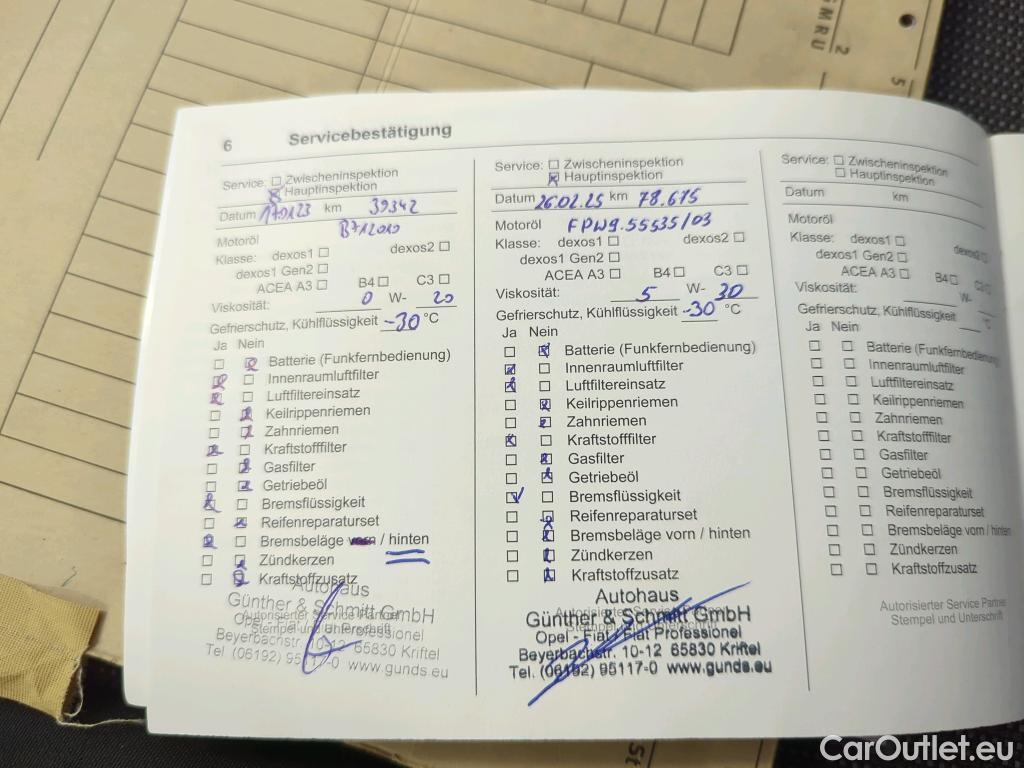 GMRU
2
5
6 Servicebestätigung
Service: Zwischeninspektion
Hauptinspektion
Datum 17.01.23 km 39342
Motoröl B712010
Klasse: dexos1 dexos2
dexos1 Gen2
ACEA A3 B4 C3
Viskosität: 0 W- 20
Gefrierschutz, Kühlflüssigkeit -30 °C
Ja Nein
Batterie (Funkfernbedienung)
Innenraumluftfilter
Luftfiltereinsatz
Keilrippenriemen
Zahnriemen
Kraftstofffilter
Gasfilter
Getriebeöl
Bremsflüssigkeit
Reifenreparaturset
Bremsbeläge vorn / hinten
Zündkerzen
Kraftstoffzusatz
Autohaus
Günther & Schmitt GmbH
Autorisierter Service Partner
Opel - Fiat - Fiat Professional
Stempel und Unterschrift
Beyerbachstr. 10-12 65830 Kriftel
Tel. (06192) 95117-0 www.gunds.eu
Service: Zwischeninspektion
Hauptinspektion
Datum 26.02.25 km 78.675
Motoröl FPW9.55535/03
Klasse: dexos1 dexos2
dexos1 Gen2
ACEA A3 B4 C3
Viskosität: 5 W- 30
Gefrierschutz, Kühlflüssigkeit -30 °C
Ja Nein
Batterie (Funkfernbedienung)
Innenraumluftfilter
Luftfiltereinsatz
Keilrippenriemen
Zahnriemen
Kraftstofffilter
Gasfilter
Getriebeöl
Bremsflüssigkeit
Reifenreparaturset
Bremsbeläge vorn / hinten
Zündkerzen
Kraftstoffzusatz
Autohaus
Günther & Schmitt GmbH
Autorisierter Service Partner
Opel - Fiat - Fiat Professional
Stempel und Unterschrift
Beyerbachstr. 10-12 65830 Kriftel
Tel. (06192) 95117-0 www.gunds.eu
Service: Zwischeninspektion
Hauptinspektion
Datum km
Motoröl
Klasse: dexos1 dexos2
dexos1 Gen2
ACEA A3 B4 C3
Viskosität: W-
Gefrierschutz, Kühlflüssigkeit °C
Ja Nein
Batterie (Funkfernbedienung)
Innenraumluftfilter
Luftfiltereinsatz
Keilrippenriemen
Zahnriemen
Kraftstofffilter
Gasfilter
Getriebeöl
Bremsflüssigkeit
Reifenreparaturset
Bremsbeläge vorn / hinten
Zündkerzen
Kraftstoffzusatz
Autorisierter Service Partner
Stempel und Unterschrift
CarOutlet.eu